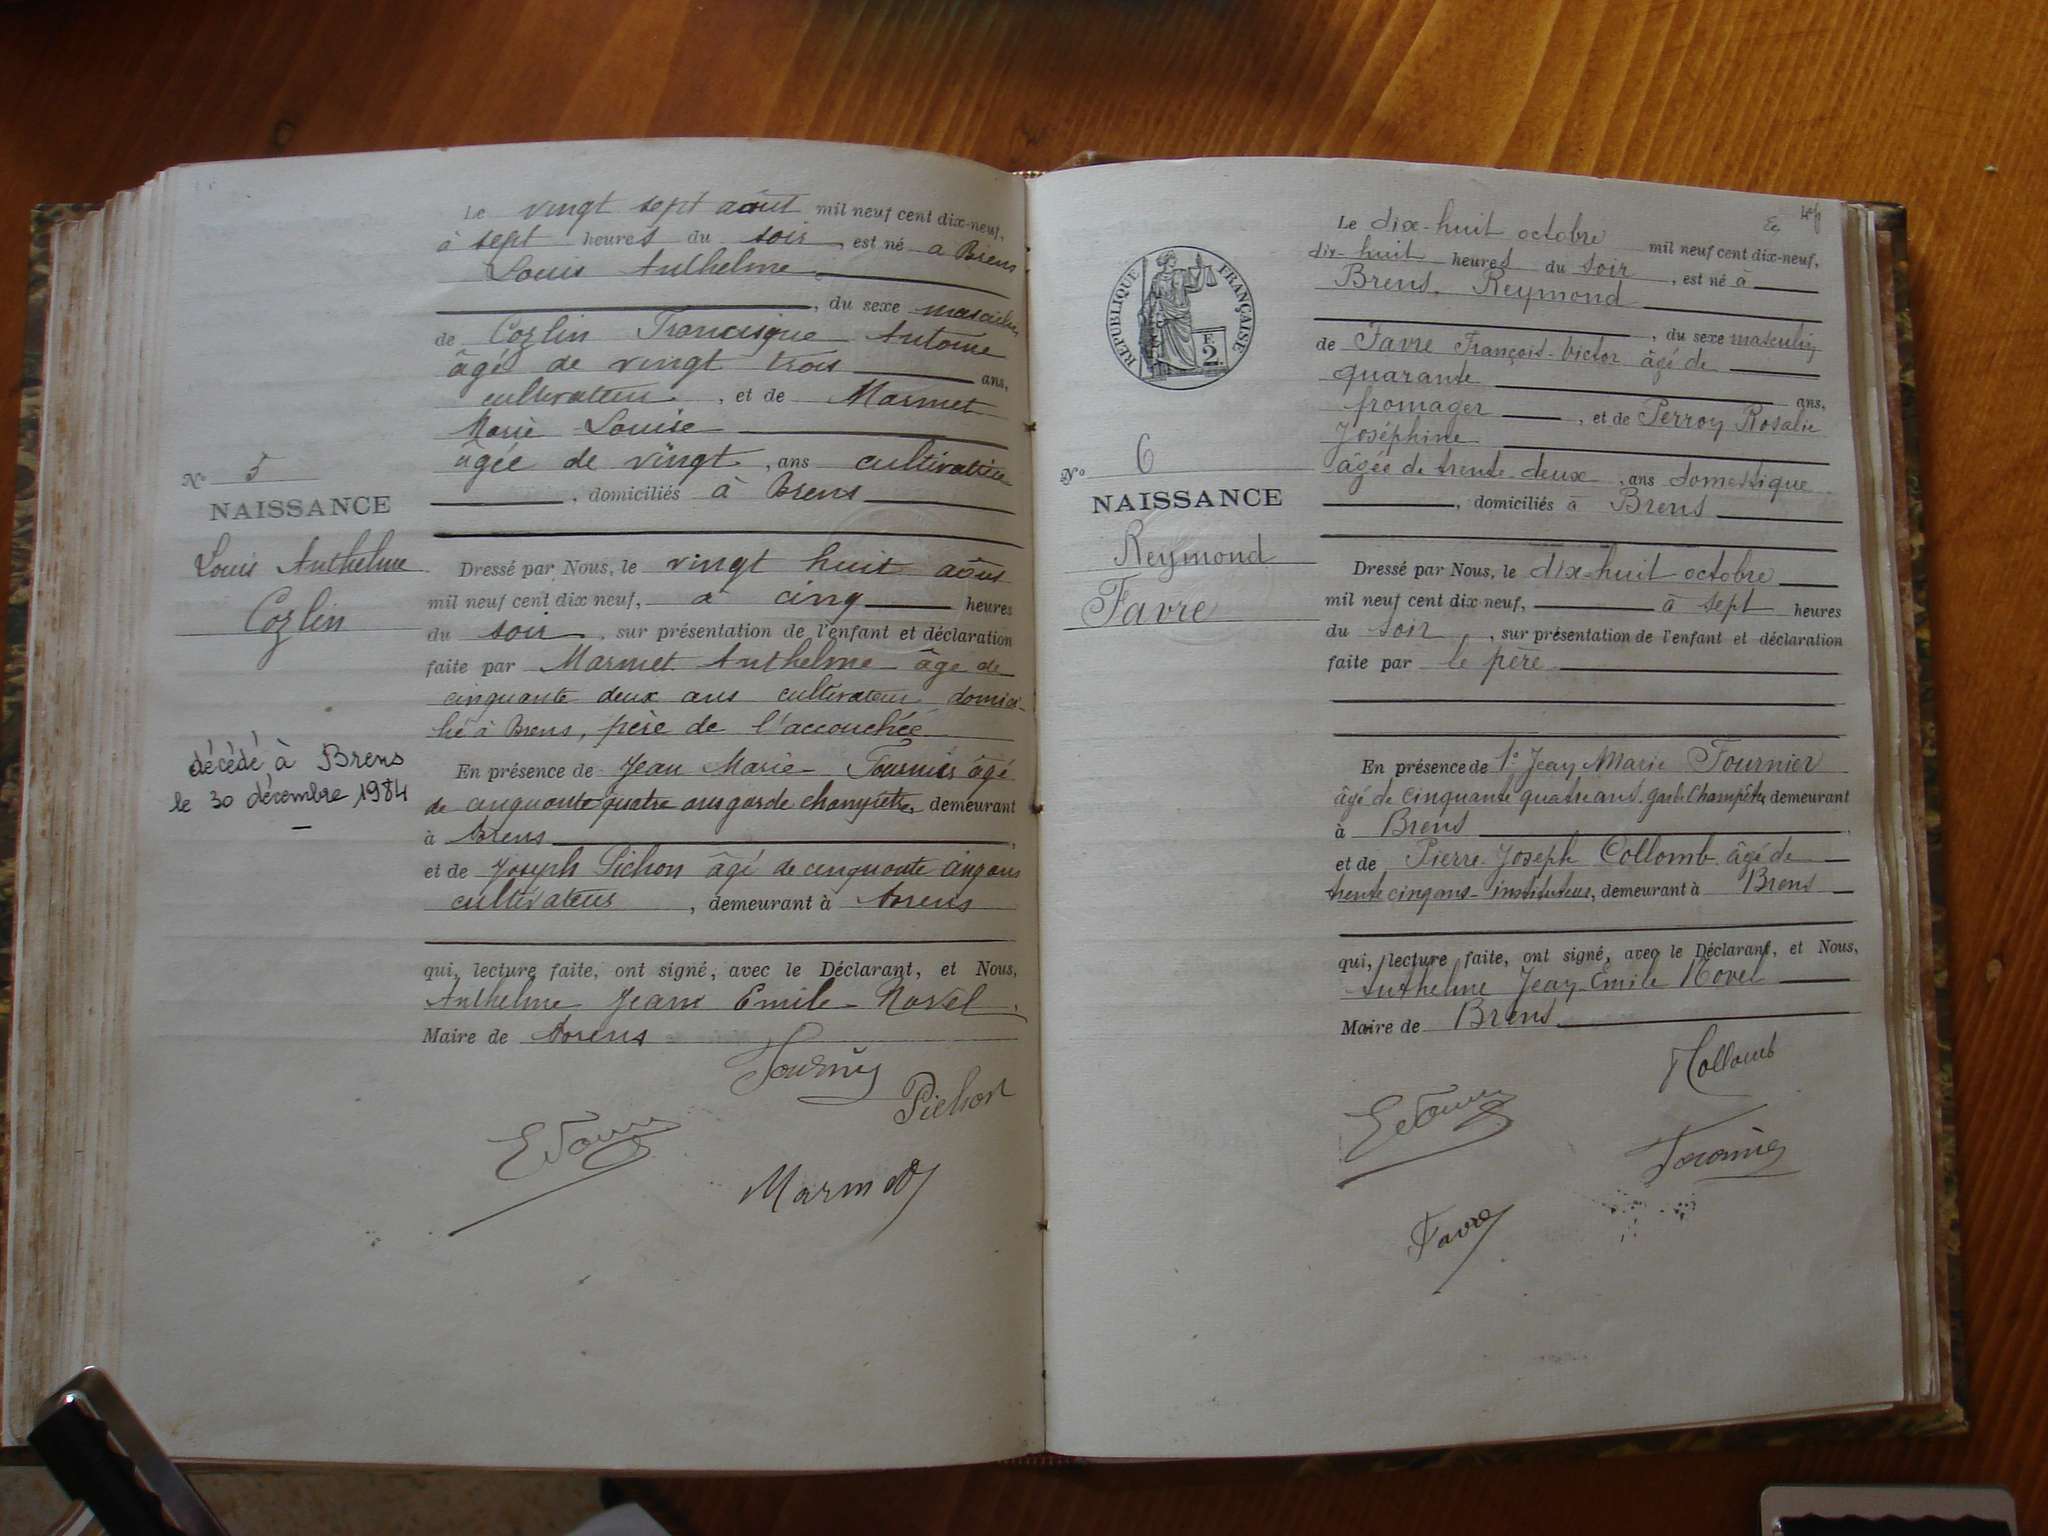 Le vingt sept août mil neuf cent dix-neuf,
à sept heures du soir, est né à Brens
Louis Anthelme
, du sexe masculin
de Cozlin Francisque Antoine
âgé de vingt trois ans,
cultivateur, et de Marmet
Marie Louise
âgée de vingt, ans cultivatrice
, domiciliés à Brens
N° 5
NAISSANCE
Louis Anthelme
Cozlin
Dressé par Nous, le vingt huit août
mil neuf cent dix neuf, à cinq heures
du soir, sur présentation de l'enfant et déclaration
faite par Marmet Anthelme âgé de
cinquante deux ans cultivateur domici-
lié à Brens, père de l'accouchée
décédé à Brens
le 30 décembre 1984
En présence de Jean Marie Fournier âgé
de cinquante quatre ans garde champêtre, demeurant
à Brens,
et de Joseph Pichon âgé de cinquante cinq ans
cultivateur, demeurant à Brens
qui, lecture faite, ont signé, avec le Déclarant, et Nous,
Anthelme Jean Emile Novel,
Maire de Brens
Fournier
Pichon
Marmet
Le dix-huit octobre mil neuf cent dix-neuf,
dix-huit heures du soir, est né à
Brens, Reymond
, du sexe masculin
de Favre François-Victor âgé de
quarante ans,
fromager, et de Perroy Rosalie
Joséphine
âgée de trente-deux, ans domestique
, domiciliés à Brens
RÉPUBLIQUE FRANÇAISE
2
N° 6
NAISSANCE
Reymond
Favre
Dressé par Nous, le dix-huit octobre
mil neuf cent dix neuf, à sept heures
du soir, sur présentation de l'enfant et déclaration
faite par le père
En présence de 1° Jean Marie Fournier
âgé de cinquante quatre ans, garde Champêtre demeurant
à Brens,
et de Pierre Joseph Collomb âgé de
trente cinq ans - instituteur, demeurant à Brens
qui, lecture faite, ont signé, avec le Déclarant, et Nous,
Anthelme Jean Emile Novel
Maire de Brens
Collomb
Fournier
Favre